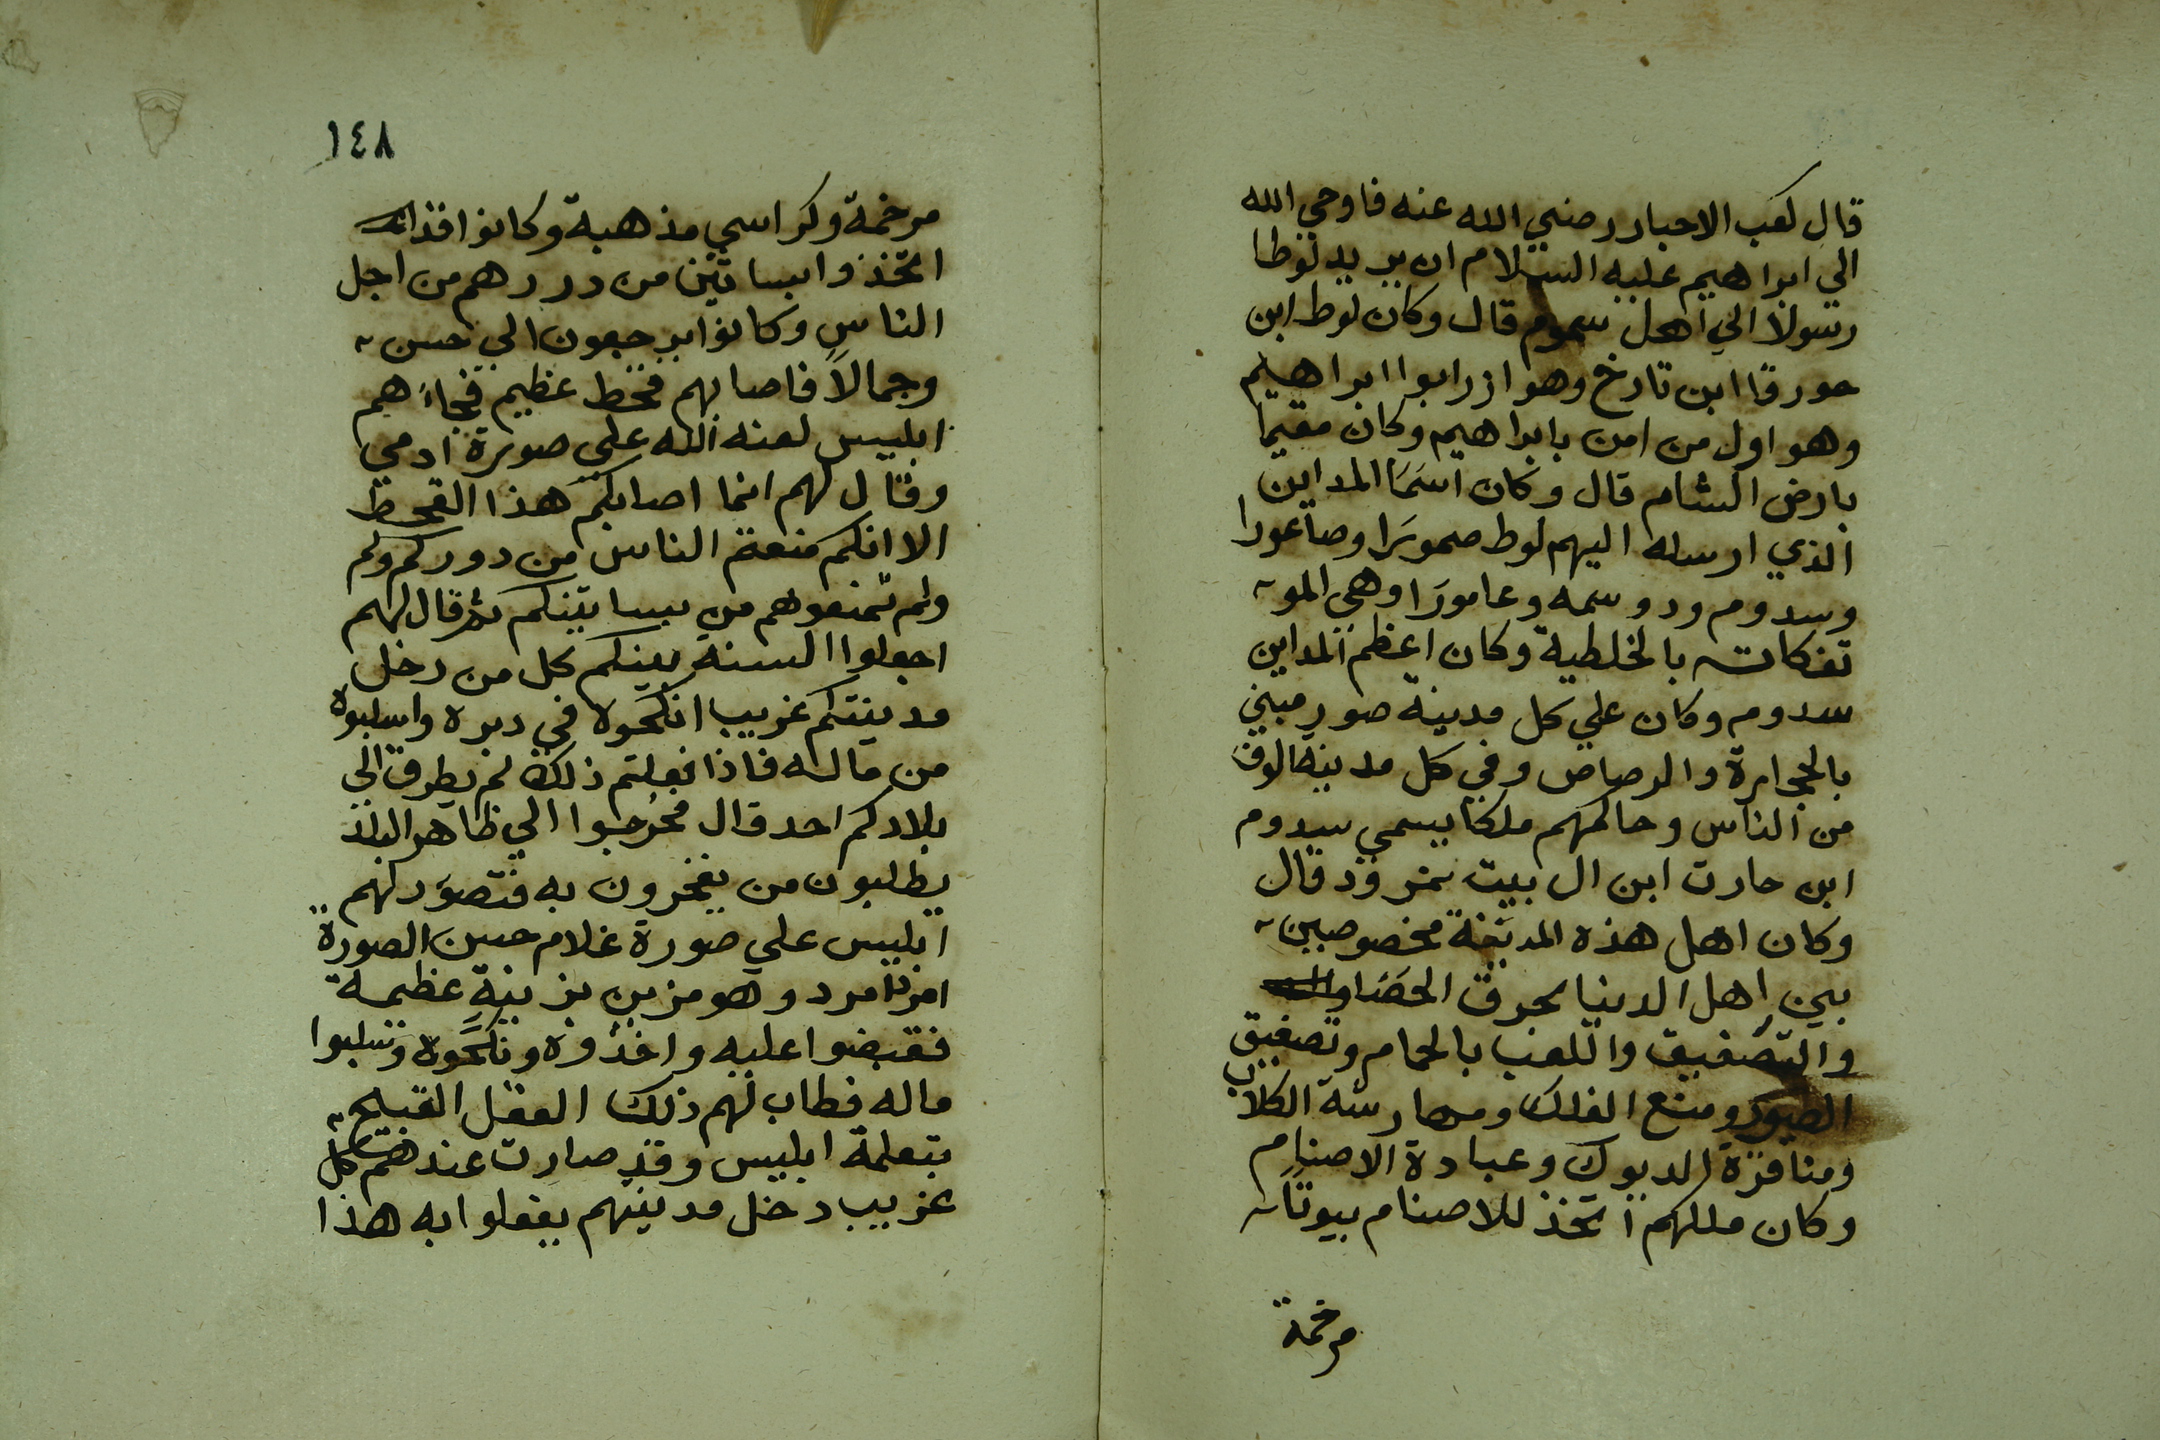 قال كعب الاحبار رضي الله عنه فاوحي الله
الي ابراهيم عليه السلام ان يريد لوطا
رسولا الي اهل سموم قال وكان لوط ابن
حورقا ابن تارخ وهو ازر ابوا ابراهيم
وهو اول من امن بابراهيم وكان مقيما
بارض الشام قال وكان اسما المداين
الذي ارسله اليهم لوط صمويرا وصاعورا
وسدوم ودوسمه وعامورا وهي المو
تفكات بالخلطية وكان اعظم المداين
سدوم وكان علي كل مدينة صور مبني
بالحجارة والرصاص وفي كل مدينة الوف
من الناس وحاكمهم ملكا يسمي سدوم
ابن حارت ابن ال بيت نمرود قال
وكان اهل هذه المدينة مخصوصين
بين اهل الدنيا بحرق الحصا
والتصفيق واللعب بالحمام وتصفيق
الطيور ومنع الفلك ومهارشة الكلاب
ومناقرة الديوك وعبادة الاصنام
وكان ملكهم اتخذ للاصنام بيوتا
مرخمة
١٤٨
مرخمة وكراسي مذهبة وكانوا قد
اتخذوا بساتين من دررهم من اجل
الناس وكانوا يرجعون الي حسن
وجمالا فاصابهم قحط عظيم فجاءهم
ابليس لعنه الله علي صورة ادمي
وقال لهم انما اصابكم هذا القحط
الا انكم منعتم الناس من دوركم ولم
ولم تمنعوهم من بساتينكم ثم قال لهم
اجعلوا السنة بينكم كل من دخل
مدينتكم غريب انكحوه في دبره واسلبوه
من ماله فاذا فعلتم ذلك لم يطرق الي
بلادكم احد قال فخرجوا الي ظاهر البلد
يطلبون من يفجرون به فتصور لهم
ابليس علي صورة غلام حسن الصورة
امرد وهو مزين بزينة عظيمة
فقبضوا عليه واخذوه ونكحوه وسلبوا
ماله فطاب لهم ذلك الفعل القبيح
بتعلمة ابليس وقد صارت عندهم كل
غريب دخل مدينتهم يفعلوا به هذا